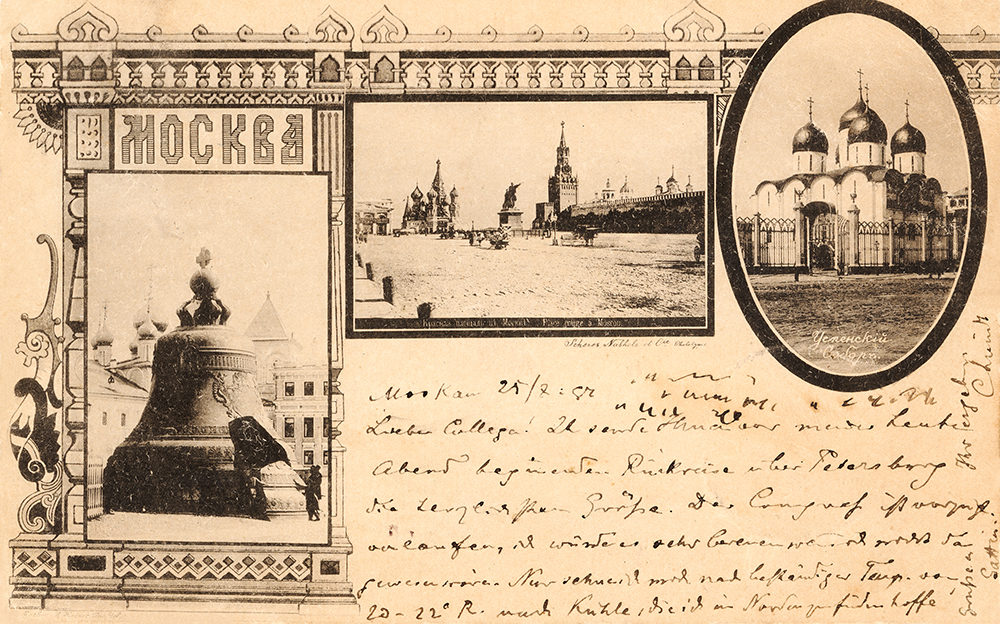 МОСКВА
Красная площадь въ Москвѣ. Place rouge à Moscou.
Scherer, Nabholz et Cie
Успенскій
Соборъ.
Moskau 25/8. 97
Lieber College! Ich sende Ihnen vor meiner heute
Abend beginnenden Rückreise über Petersburg
die herzlichsten Grüße. Der Congress ist vorzügl.
verlaufen, ich würde es sehr bereuen wenn ich nicht da
gewesen wäre. Nur sehne ich mich nach beständiger Temp. von
20-22° R. nach Kühle, die ich im Norden zu finden hoffe
Ihr ergeb.